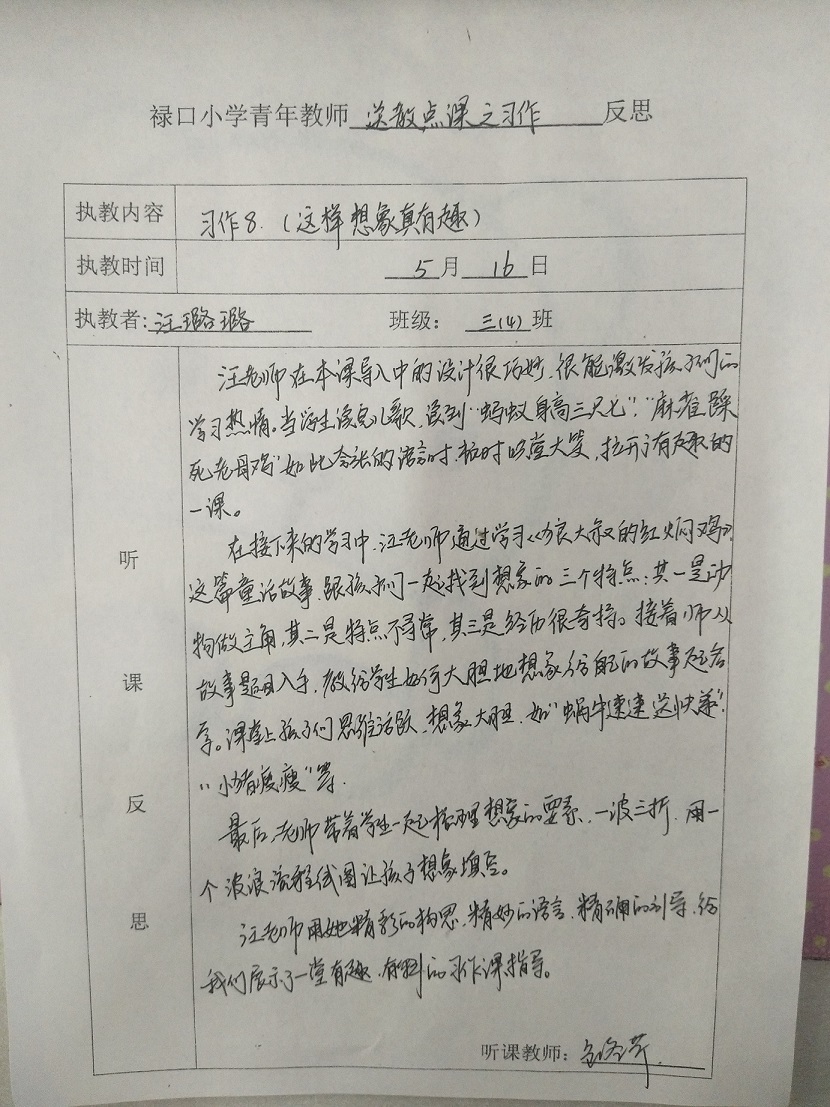 禄口小学青年教师 送教点课之习作 反思
执教内容 习作8.（这样想象真有趣）
执教时间 5月16日
执教者: 汪璐璐 班级： 三(4)班
听课反思
汪老师在本课导入中的设计很巧妙，很能激发孩子们的
学习热情。当学生读完儿歌，读到“蚂蚁身高三尺七”，“麻雀踩
死老母鸡”如此夸张的语言时，顿时哄堂大笑，拉开了有趣的
一课。
在接下来的学习中，汪老师通过学习《方良大叔的红焖鸡》
这篇童话故事，跟孩子们一起找到想象的三个特点：其一是动
物做主角，其二是特点不寻常，其三是经历很奇特。接着，师从
故事题目入手，教给学生如何大胆地想象给自己的故事起名
字。课堂上孩子们思维活跃，想象大胆，如“蜗牛速速送快递”，
“小猪瘦瘦”等.
最后，老师带着学生一起梳理想象的要素，一波三折，用一
个波浪流程线图让孩子想象填空。
汪老师用她精彩的构思，精妙的语言，精确的引导，给
我们展示了一堂有趣、有料的习作课指导。
听课教师：